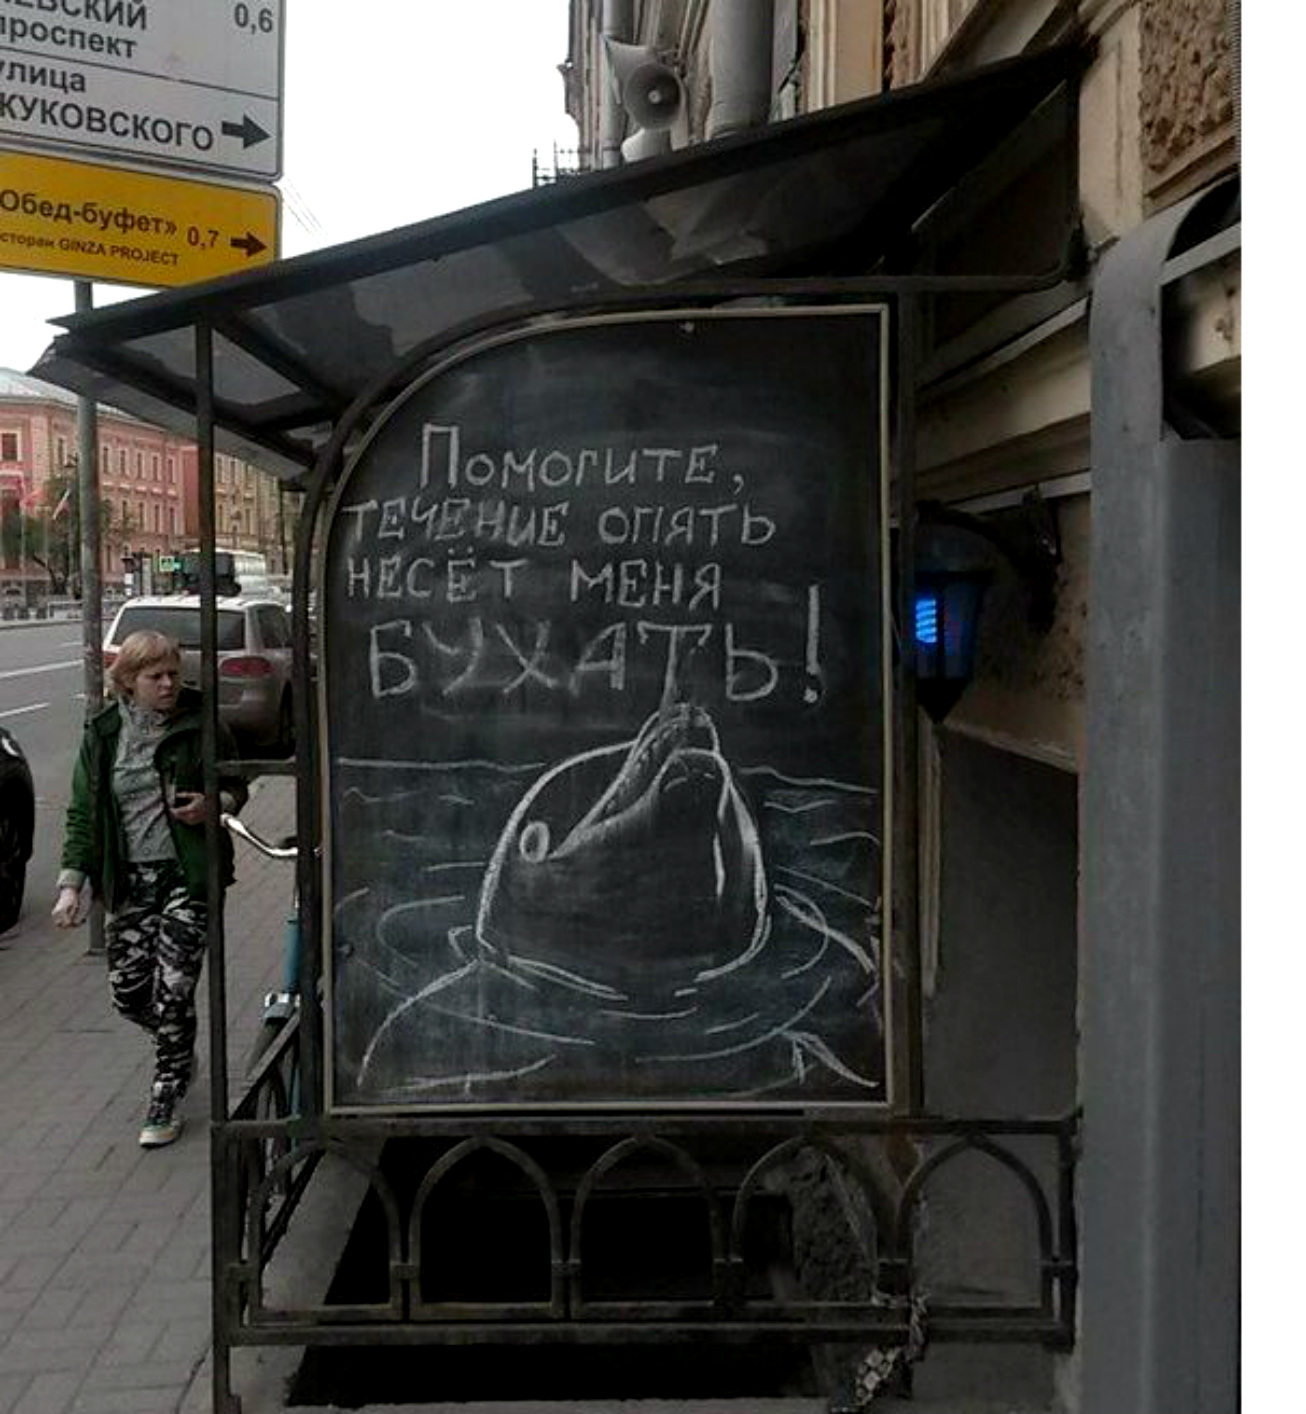 проспект
0,6
улица
ЖУКОВСКОГО
Обед-буфет» 0,7
GINZA PROJECT
Помогите,
течение опять
несёт меня
БУХАТЬ!